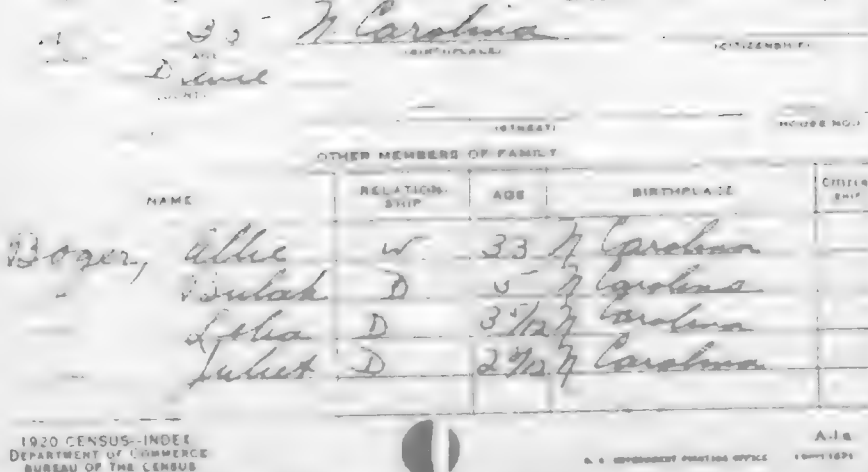 35 N Carolina
AGE (BIRTHPLACE) (CITIZENSHIP)
Davie
(STREET) HOUSE NO.
OTHER MEMBERS OF FAMILY
NAME RELATION-SHIP AGE BIRTHPLACE CITIZEN-SHIP
Boger, Allie W 33 N Carolina
" Beulah D 5 N Carolina
Lelia D 3 5/12 N Carolina
Juliet D N Carolina
1920 CENSUS--INDEX
DEPARTMENT OF COMMERCE
BUREAU OF THE CENSUS
A-1a
GOVERNMENT PRINTING OFFICE